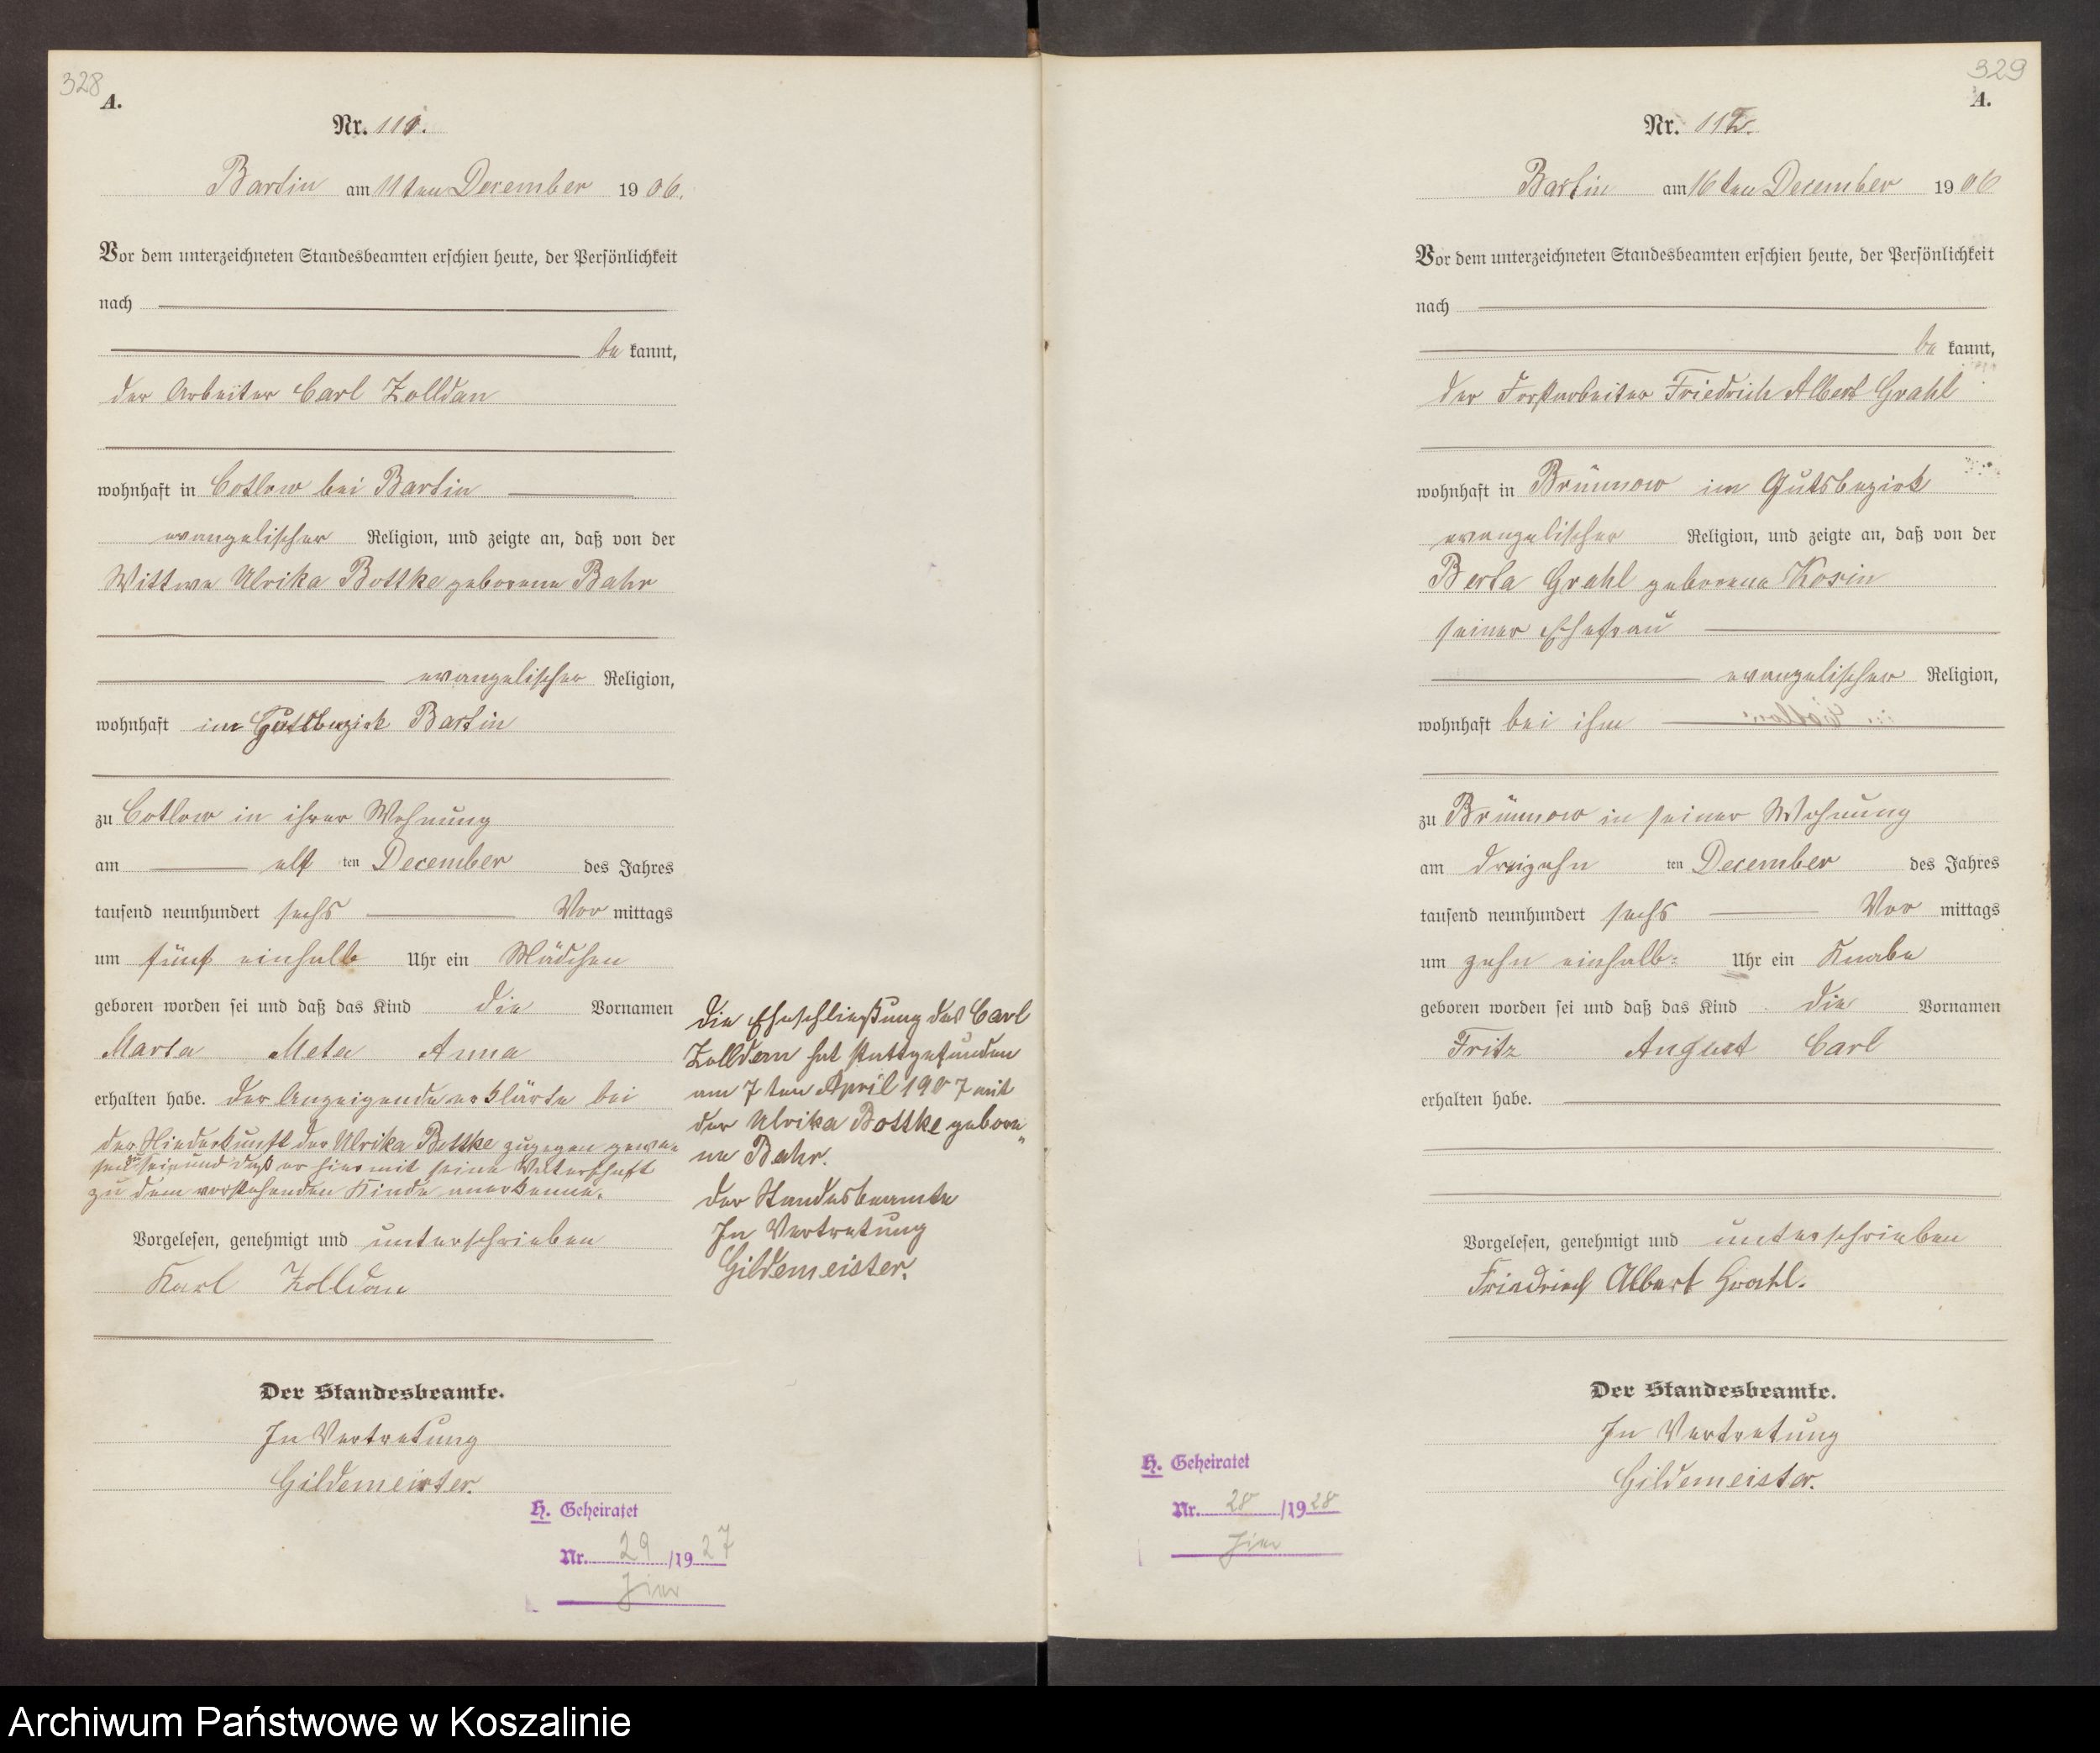 328
A.
Nr. 111.
Bartin am 11ten December 1906.
Vor dem unterzeichneten Standesbeamten erschien heute, der Persönlichkeit
nach
be kannt,
der Arbeiter Carl Zolldan
wohnhaft in Cotlow bei Bartin
evangelischer Religion, und zeigte an, daß von der
Wittwe Ulrika Bottke geborene Bahr
evangelischer Religion,
wohnhaft im Gutsbezirk Bartin
zu Cotlow in ihrer Wohnung
am elf ten December des Jahres
tausend neunhundert sechs Vor mittags
um fünf einhalb Uhr ein Mädchen
geboren worden sei und daß das Kind die Vornamen
Marta Meta Anna
erhalten habe. Der Anzeigende erklärte bei
der Niederkunft der Ulrika Bottke zugegen gewe-
sen zu sein und daß er hiermit seine Vaterschaft
zu dem vorstehenden Kinde anerkenne.
Vorgelesen, genehmigt und unterschrieben
Karl Zolldan
Der Standesbeamte.
In Vertretung
Gildemeister.
H. Geheiratet
Nr. 29 /1927
hier
Die Eheschließung des Carl
Zolldan hat stattgefunden
am 7ten April 1907 mit
der Ulrika Bottke gebore-
ne Bahr.
Der Standesbeamte
In Vertretung
Gildemeister.
329
A.
Nr. 112.
Bartin am 16ten December 1906
Vor dem unterzeichneten Standesbeamten erschien heute, der Persönlichkeit
nach
be kannt,
der Forstarbeiter Friedrich Albert Grahl
wohnhaft in Brünnow im Gutsbezirk
evangelischer Religion, und zeigte an, daß von der
Berta Grahl geborene Kosin
seiner Ehefrau
evangelischer Religion,
wohnhaft bei ihm
zu Brünnow in seiner Wohnung
am dreizehn ten December des Jahres
tausend neunhundert sechs Vor mittags
um zehn einhalb Uhr ein Knabe
geboren worden sei und daß das Kind die Vornamen
Fritz August Carl
erhalten habe.
Vorgelesen, genehmigt und unterschrieben
Friedrich Albert Grahl.
Der Standesbeamte.
In Vertretung
Gildemeister.
H. Geheiratet
Nr. 28 /1928
hier
Archiwum Państwowe w Koszalinie